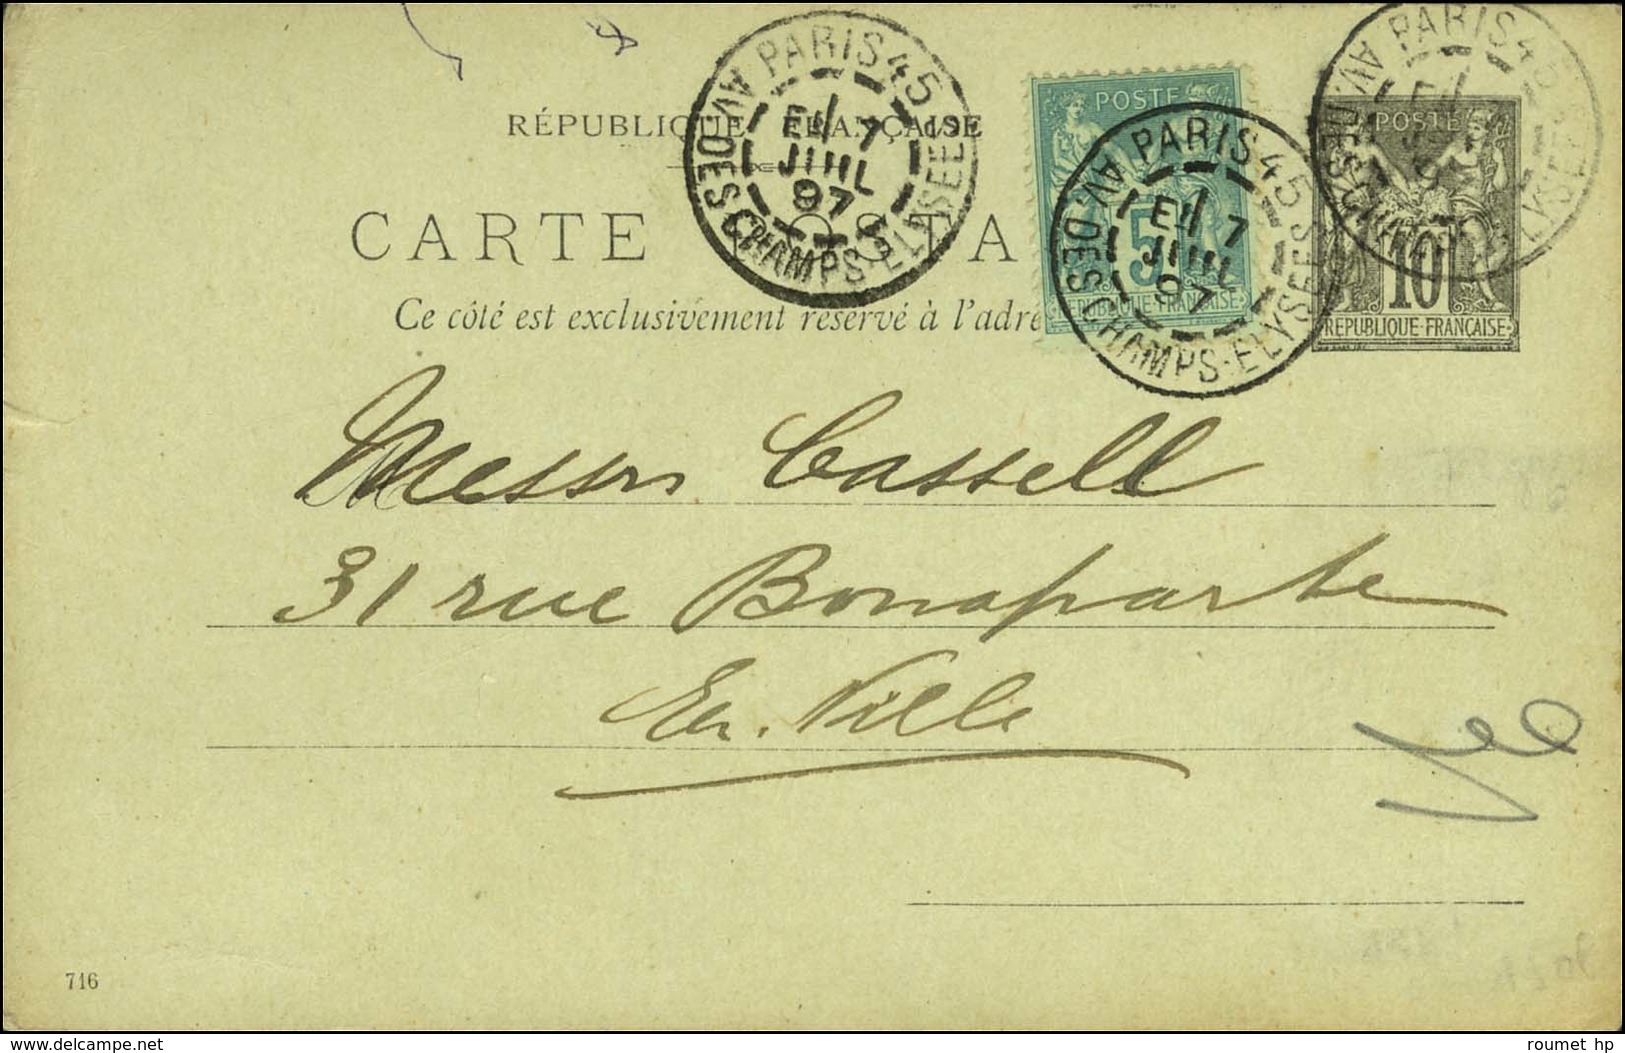 RÉPUBLIQUE FRANÇAISE
CARTE POSTA
Ce côté est exclusivement réservé à l'adre
PARIS 45
AV. DES CHAMPS-ELYSEES
7
JUIL
97
POSTE
5
REPUBLIQUE-FRANÇAISE
PARIS 45
AV. DES CHAMPS-ELYSEES
7
JUIL
97
POSTE
10
REPUBLIQUE-FRANÇAISE
PARIS 45
AV. DES CHAMPS-ELYSEES
Messrs Cassell
31 rue Bonaparte
En Ville
716
© delcampe.net
roumet hp